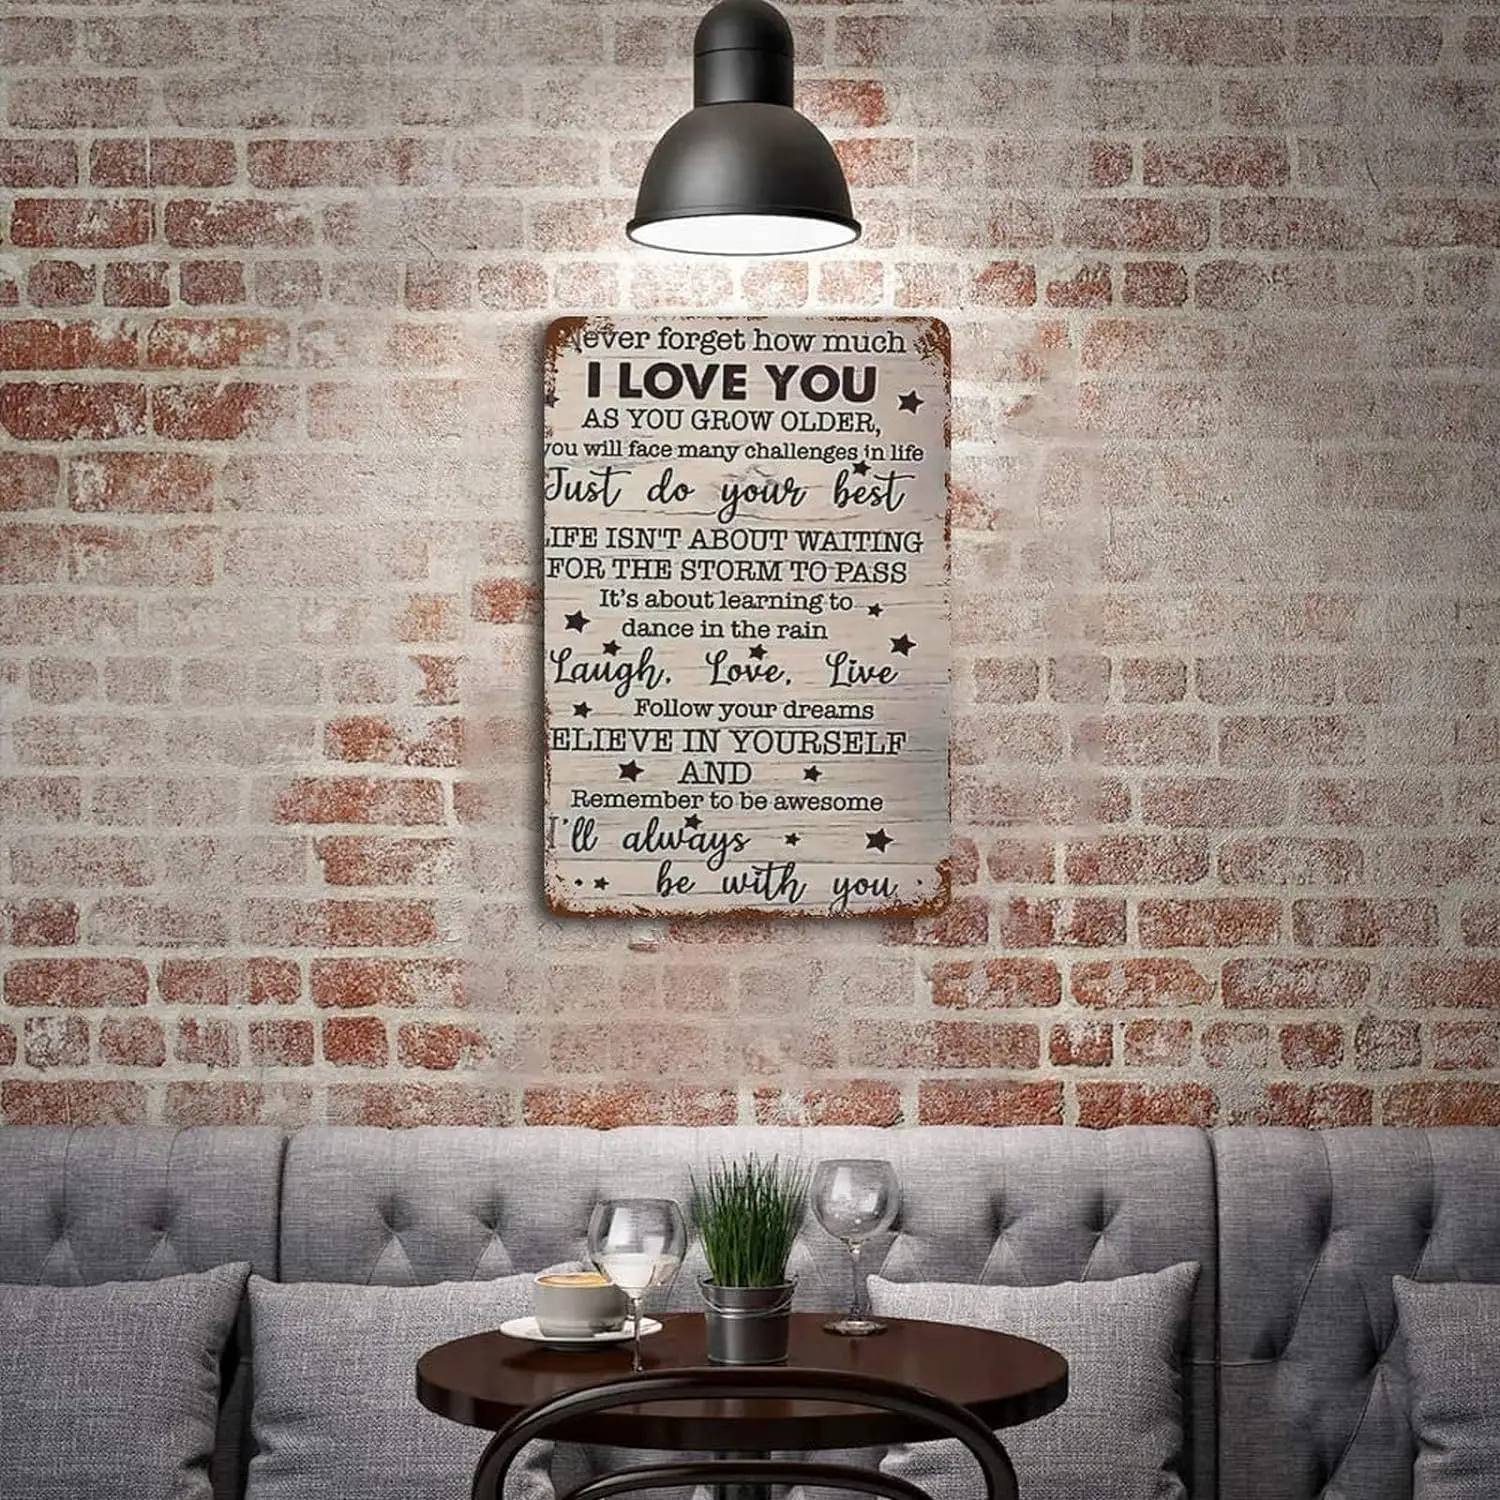 Never forget how much
I LOVE YOU
AS YOU GROW OLDER,
you will face many challenges in life
Just do your best
LIFE ISN'T ABOUT WAITING
FOR THE STORM TO PASS
It's about learning to
dance in the rain
Laugh, Love, Live
Follow your dreams
ELIEVE IN YOURSELF
AND
Remember to be awesome
I'll always
be with you